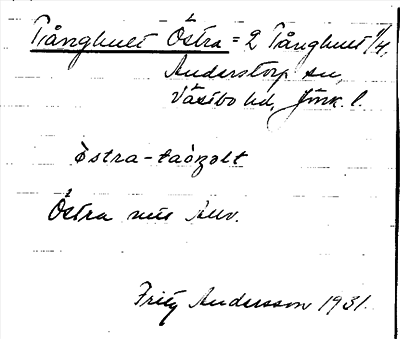 Tånghult Östra = 2 Tånghult 1/4,
Anderstorp sn,
Västbo hd, Jönk. l.
östra-tåŋholt
Östra
Fritz Andersson 1931.